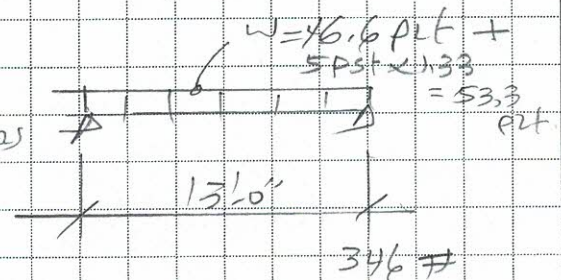 W=46.6 plf +
5 psf x 1.33
= 53.3
plf
13'-0"
346 #